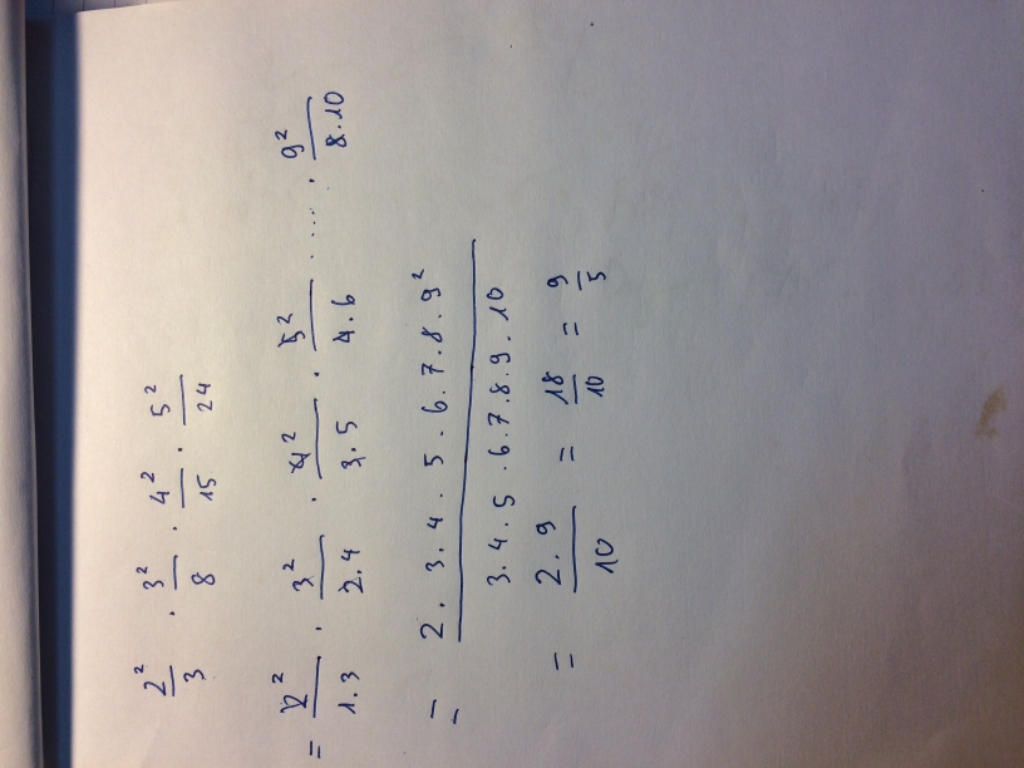 2²/3 · 3²/8 · 4²/15 · 5²/24
= 2²/1.3 · 3²/2.4 · 4²/3.5 · 5²/4.6 · .... · 9²/8.10
= 2 . 3 . 4 . 5 . 6 . 7 . 8 . 9² / 3 . 4 . 5 . 6 . 7 . 8 . 9 . 10
= 2 . 9 / 10 = 18/10 = 9/5